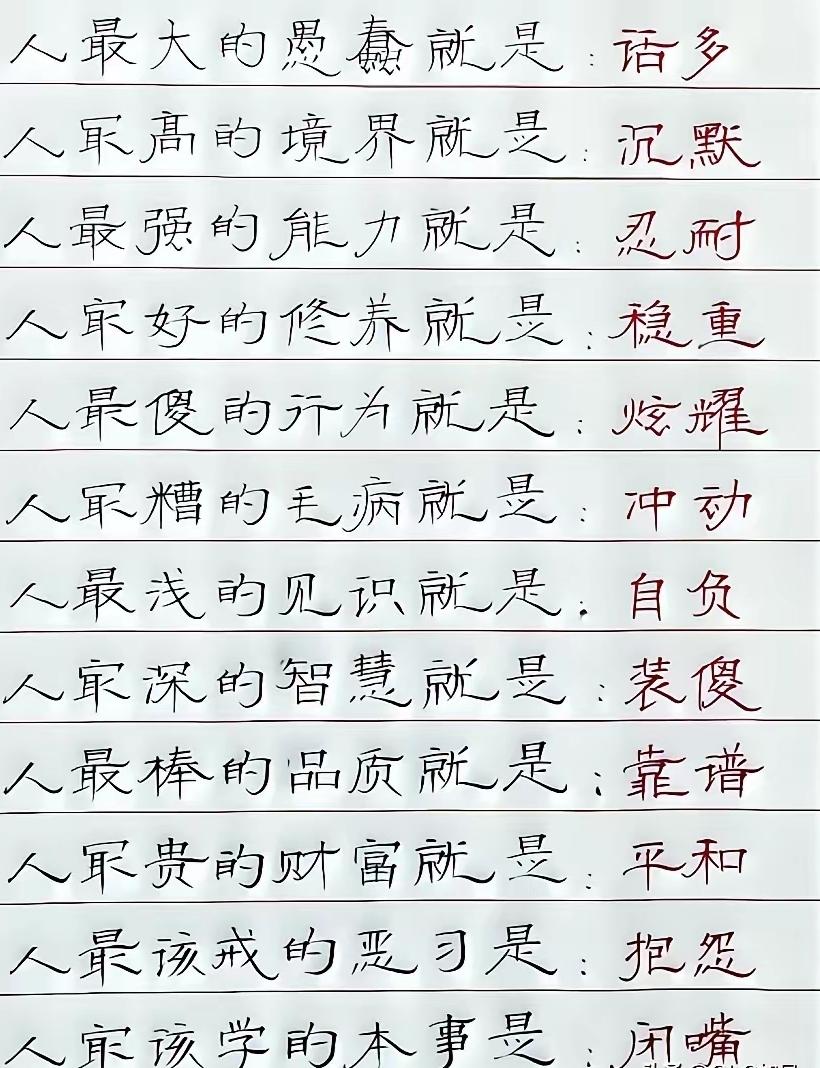 人最大的愚蠢就是:话多
人最高的境界就是:沉默
人最强的能力就是:忍耐
人最好的修养就是:稳重
人最傻的行为就是:炫耀
人最糟的毛病就是:冲动
人最浅的见识就是:自负
人最深的智慧就是:装傻
人最棒的品质就是:靠谱
人最贵的财富就是:平和
人最该戒的恶习是:抱怨
人最该学的本事是:闭嘴